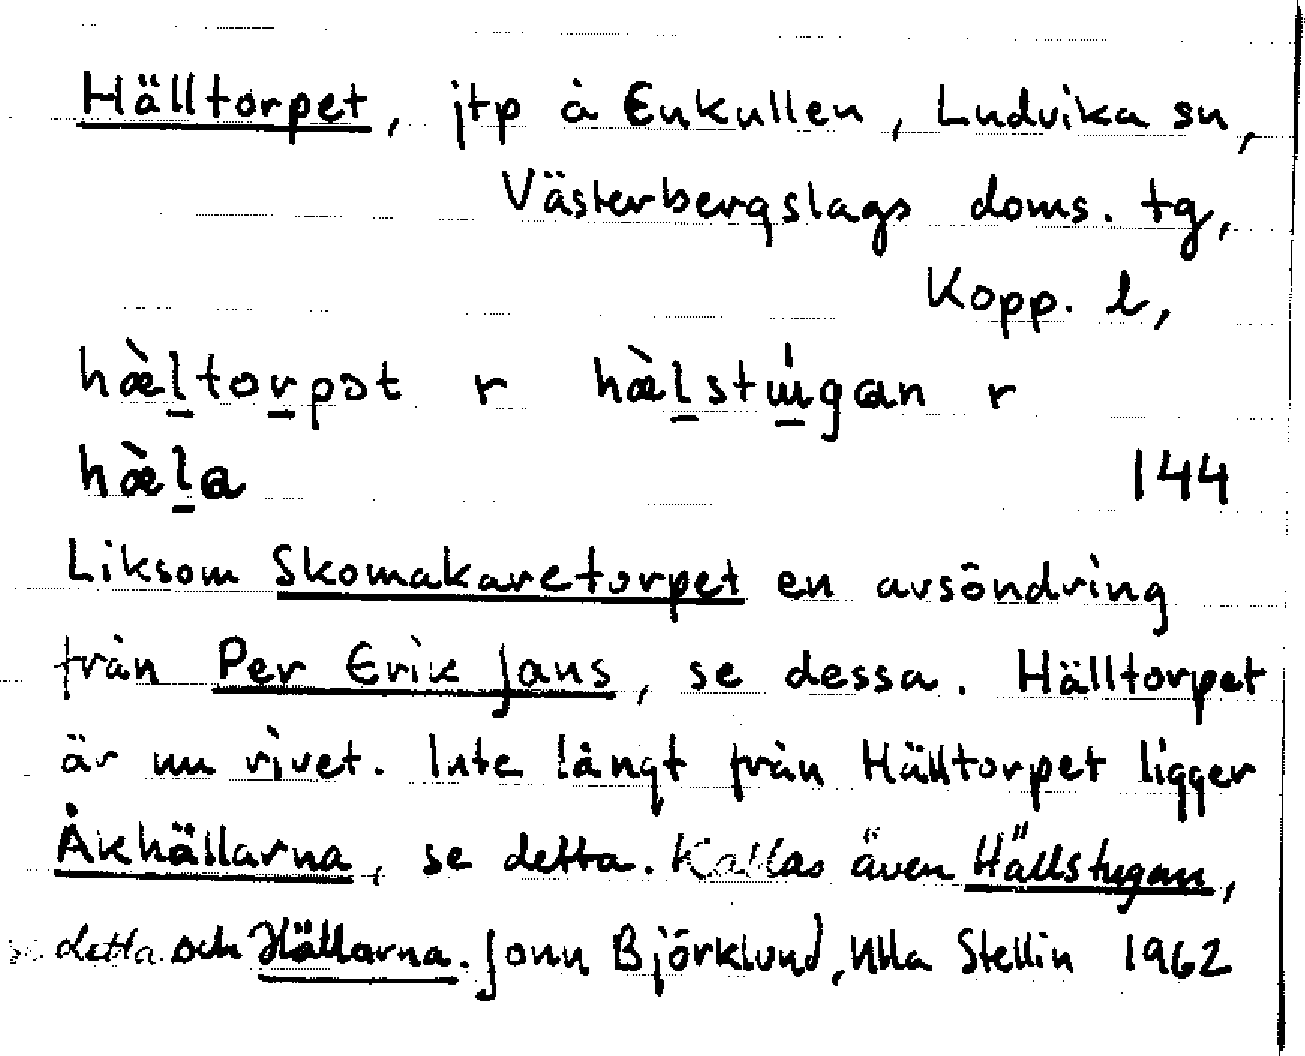 Hälltorpet, jtp å Enkullen, Ludvika sn,
Västerbergslags doms. tg,
Kopp. l,
hæ̀ḻtoṟpət r hæ̀ḻstɯ̱́gan r
hæ̀ḻa 144
Liksom Skomakaretorpet en avsöndring
från Per Erik Jans, se dessa. Hälltorpet
är nu rivet. Inte långt från Hälltorpet ligger
Åkhällarna, se detta. Kallas även Hällstugan,
se detta och Hällarna. Jonn Björklund, Ulla Stellin 1962